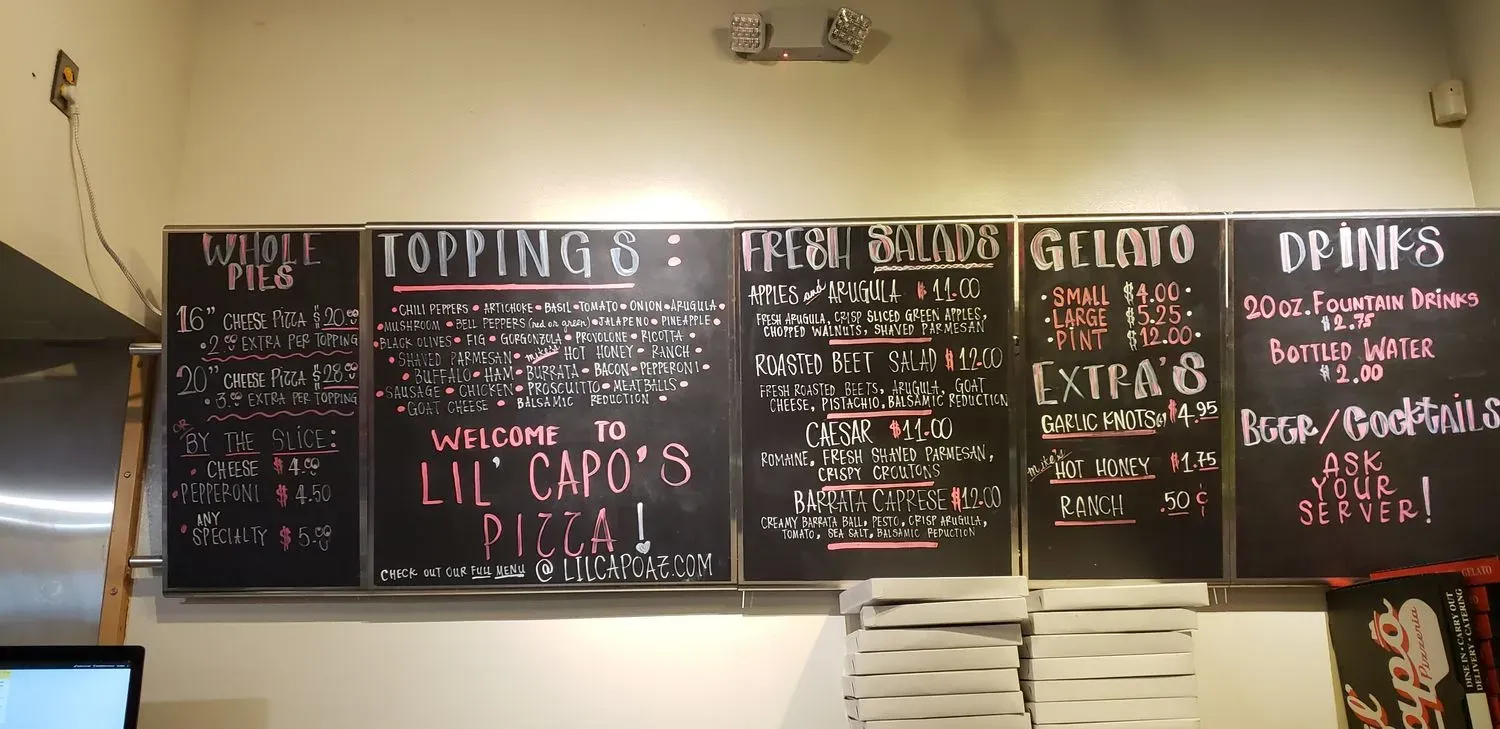 WHOLE
PIES
16" CHEESE PIZZA $20.00
• 2.00 EXTRA PER TOPPING
20" CHEESE PIZZA $28.00
• 3.00 EXTRA PER TOPPING
OR
BY THE SLICE:
• CHEESE $4.00
• PEPPERONI $4.50
• ANY
SPECIALTY $5.00
TOPPINGS:
• CHILI PEPPERS • ARTICHOKE • BASIL • TOMATO • ONION • ARUGULA •
• MUSHROOM • BELL PEPPERS (red or green) • JALAPENO • PINEAPPLE •
• BLACK OLIVES • FIG • GORGONZOLA • PROVOLONE • RICOTTA •
• SHAVED PARMESAN • Mike's HOT HONEY • RANCH •
• BUFFALO • HAM • BURRATA • BACON • PEPPERONI •
• SAUSAGE • CHICKEN • PROSCUITTO • MEATBALLS •
• GOAT CHEESE • BALSAMIC REDUCTION •
WELCOME TO
LIL' CAPO'S
PIZZA!
CHECK OUT OUR FULL MENU @ LILCAPOAZ.COM
FRESH SALADS
APPLES and ARUGULA $11.00
FRESH ARUGULA, CRISP SLICED GREEN APPLES,
CHOPPED WALNUTS, SHAVED PARMESAN
ROASTED BEET SALAD $12.00
FRESH ROASTED BEETS, ARUGULA, GOAT
CHEESE, PISTACHIO, BALSAMIC REDUCTION
CAESAR $11.00
ROMAINE, FRESH SHAVED PARMESAN,
CRISPY CROUTONS
BARRATA CAPRESE $12.00
CREAMY BARRATA BALL, PESTO, CRISP ARUGULA,
TOMATO, SEA SALT, BALSAMIC REDUCTION
GELATO
• SMALL $4.00 •
• LARGE $5.25 •
• PINT $12.00 •
EXTRA'S
GARLIC KNOTS $4.95
Mike's HOT HONEY $1.75
RANCH .50¢
DRINKS
20oz. FOUNTAIN DRINKS
$2.75
BOTTLED WATER
$2.00
BEER/COCKTAILS
ASK
YOUR
SERVER!
GELATO
Capo's
Pizzeria
DINE IN • CARRY OUT
DELIVERY • CATERING